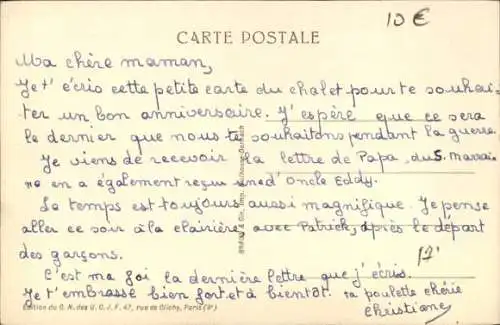 10 €
CARTE POSTALE
Ma chère maman,
Je t'écris cette petite carte du chalet pour te souhai-
ter un bon anniversaire. J'espère que ce sera
le dernier que nous te souhaitons pendant la guerre
Je viens de recevoir la lettre de Papa, du 5. Marrai-
ne en a également reçu une d'Oncle Eddy.
Le temps est toujours aussi magnifique. Je pense
aller ce soir à la clairière avec Patrick, après le départ
des garçons.
17'
C'est ma foi la dernière lettre que j'écris.
Je t'embrasse bien fort et à bientôt. ta poulette chérie
Christiane
Édition du C. N. des U. C. J. F. 47, rue de Clichy, Paris (9e)